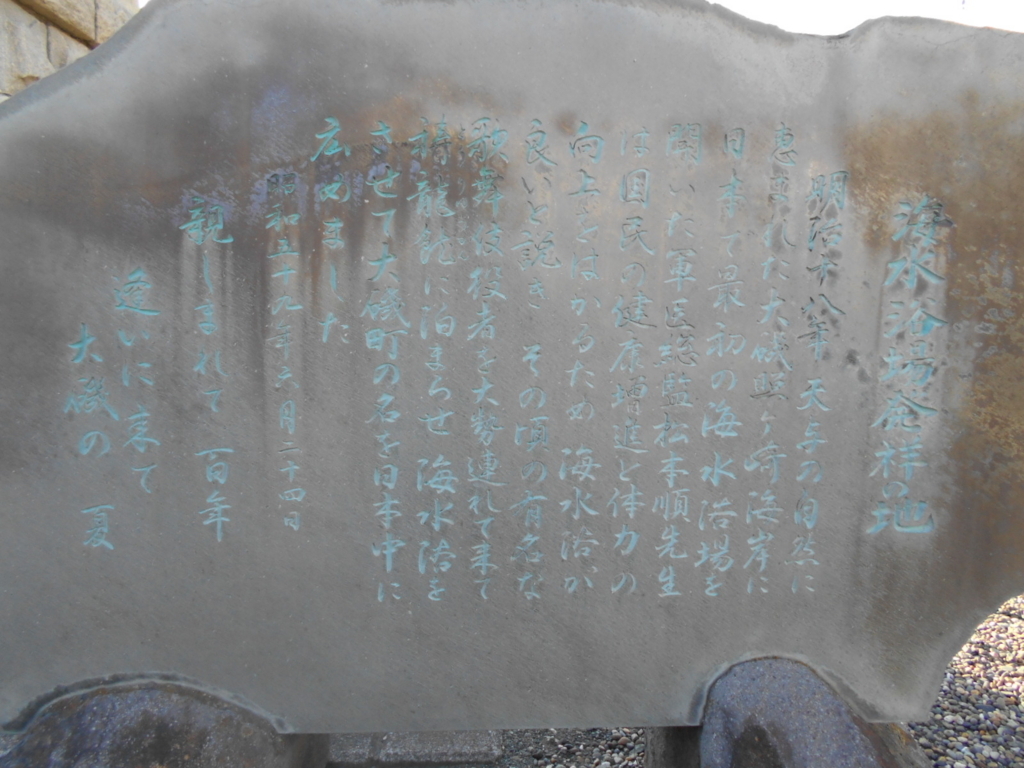 海水浴場発祥の地
明治十八年 天与の自然に
恵まれた大磯照ヶ崎海岸に
日本で最初の海水浴場を
開いた軍医総監松本順先生
は国民の健康増進と体力の
向上をはかるため 海水浴が
良いと説き その頃の有名な
歌舞伎役者を大勢連れて来て
祷龍館に泊まらせ 海水浴を
させて大磯町の名を日本中に
広めました
昭和五十九年六月二十四日
親しまれて 百年
逢いに来て
大磯の 夏